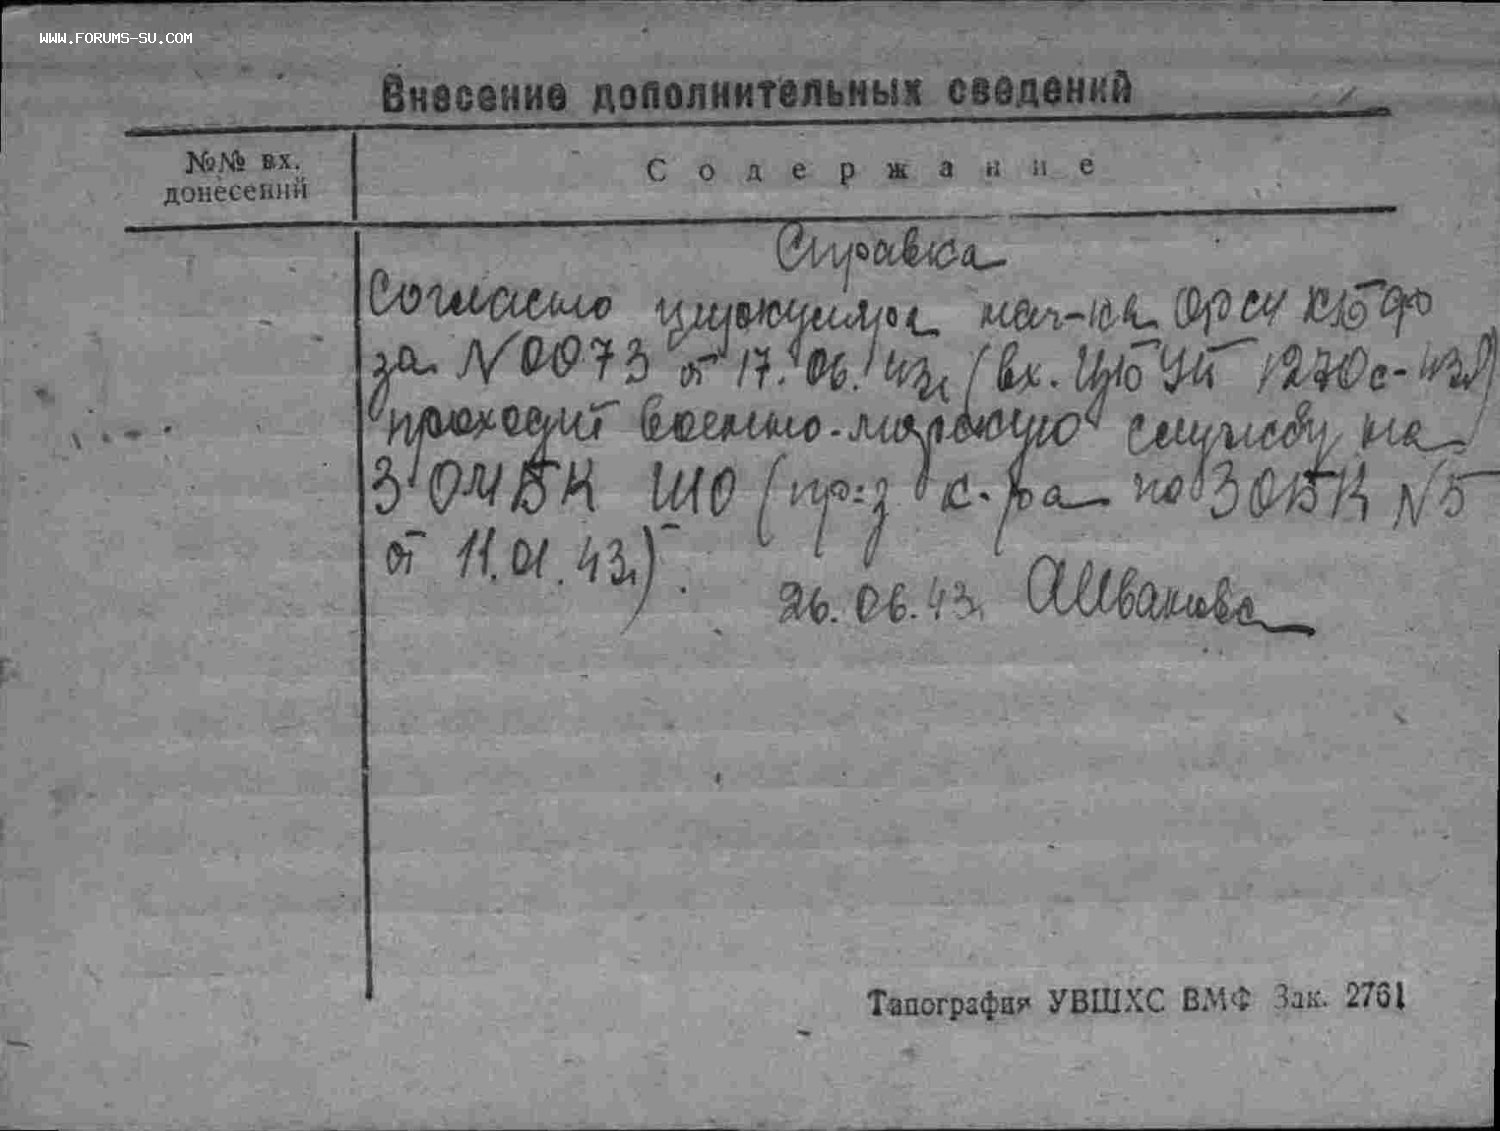 WWW.FORUMS-SU.COM
Внесение дополнительных сведений
№№ вх. Содержание
донесений
Справка
Согласно циркуляра нач-ка ОРСУ КБФ
за N 0073 от 17.06.43г. (вх. ЦБУП 1270с-43г)
проходит военно-морскую службу на
3 ОМБК ШО (пр-з к-ра по 3 ОБК N 5
от 11.01.43г.).
26.06.43г. АИванова
Типография УВШХС ВМФ Зак. 2761